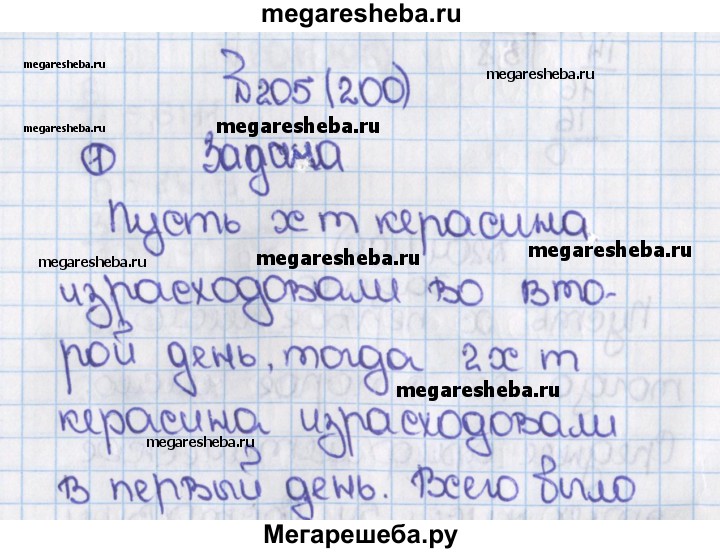 megaresheba.ru
№205 (200)
megaresheba.ru
megaresheba.ru
megaresheba.ru
① Задача
Пусть x т керасина
megaresheba.ru
megaresheba.ru
megaresheba.ru
израсходовали во вто-
рой день, тогда 2x т
megaresheba.ru
керасина израсходовали
megaresheba.ru
в первый день. Всего было
Мегарешеба.ру